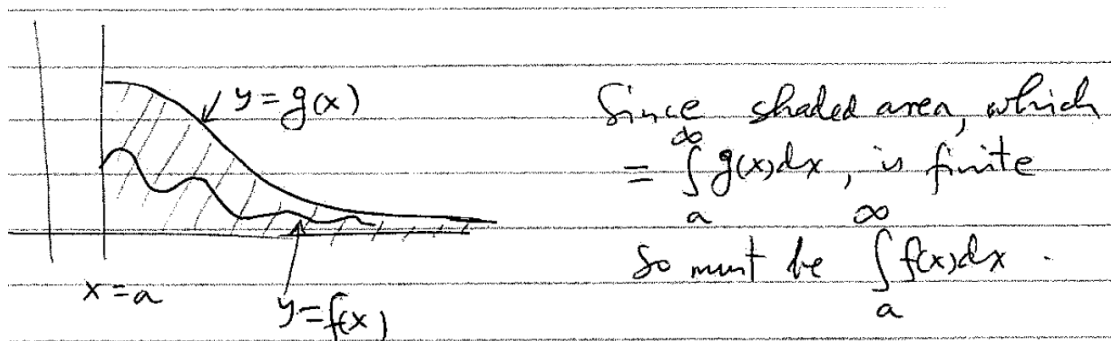 y = g(x)
x = a
y = f(x)
Since shaded area, which
= ∫_a^∞ g(x)dx, is finite
So must be ∫_a^∞ f(x)dx .